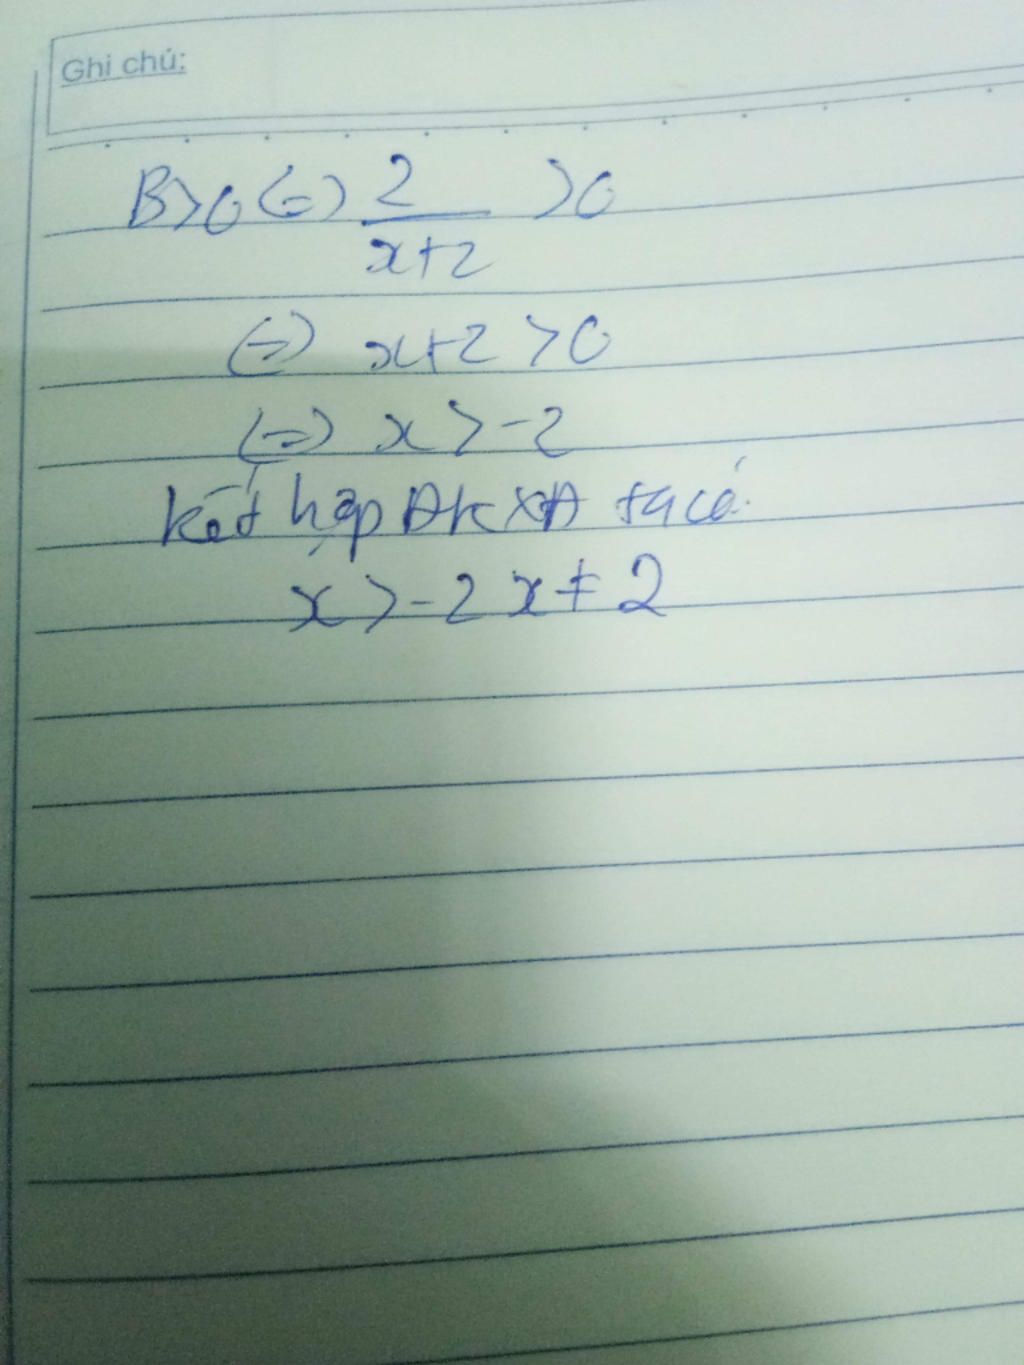 Ghi chú:
B>0 (=) 2/(x+2) >0
(=) x+2 >0
(=) x > -2
kết hợp ĐKXĐ ta có
x > -2 x ≠ 2